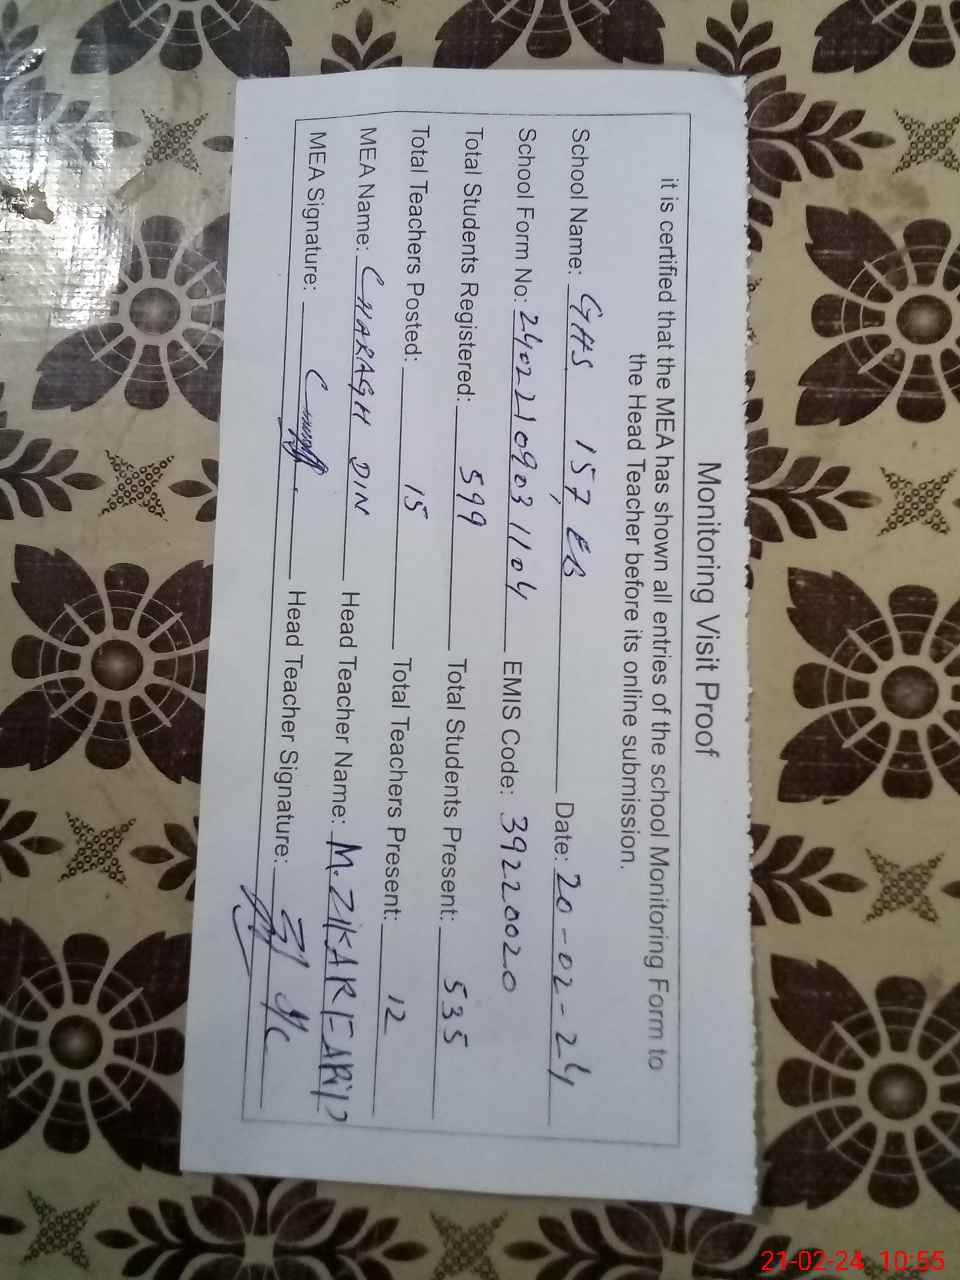 Monitoring Visit Proof
it is certified that the MEA has shown all entries of the school Monitoring Form to
the Head Teacher before its online submission.
School Name: GHS 157 EB Date: 20-02-24
School Form No: 24022109031104 EMIS Code: 39220020
Total Students Registered: 599 Total Students Present: 535
Total Teachers Posted: 15 Total Teachers Present: 12
MEA Name: CHARAGH DIN Head Teacher Name: M. ZIKAR
MEA Signature: Head Teacher Signature:
21-02-24 10:55